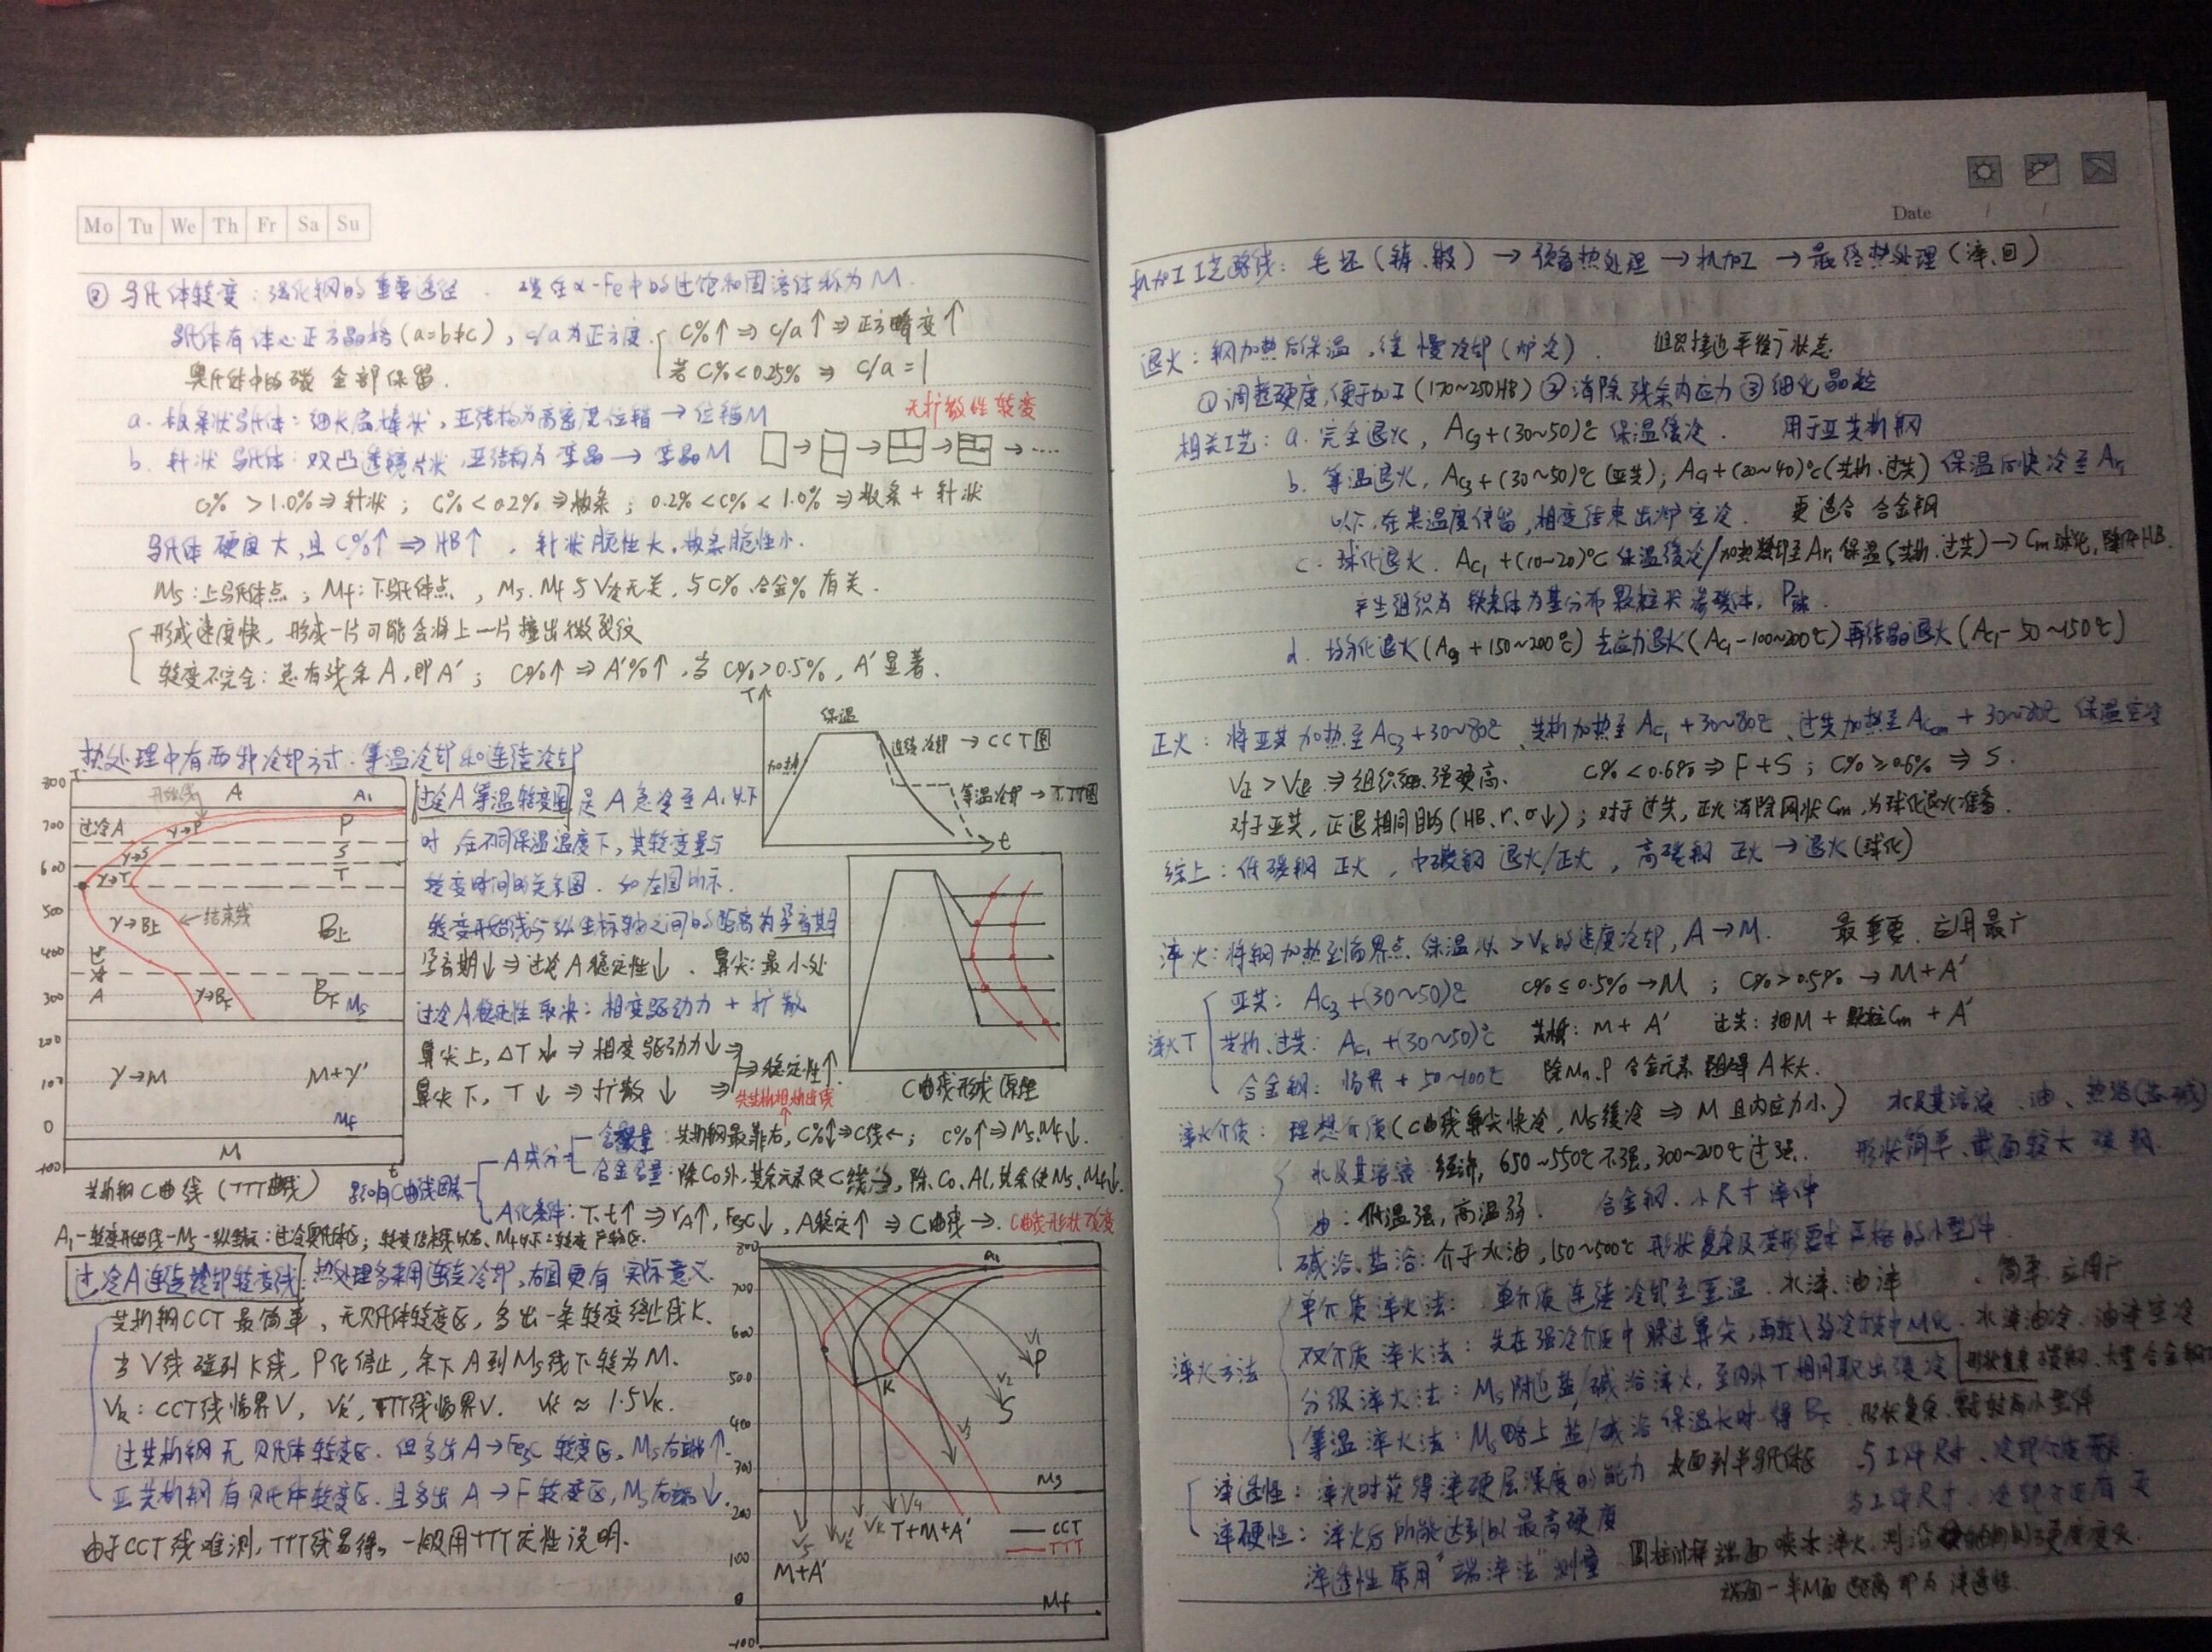 Mo Tu We Th Fr Sa Su
② 马氏体转变：强化钢的重要途径． 碳在α-Fe中的过饱和固溶体称为M．
马氏体有体心正方晶格(a=b≠c)，c/a为正方度． C%↑⇒c/a↑⇒正方畸变↑
奥氏体中的碳全部保留． 若C%<0.25% ⇒ c/a=1
a. 板条状马氏体：细长扁棒状，亚结构为高密度位错→位错M
无扩散性转变
b. 针状马氏体：双凸透镜片状，亚结构为孪晶→孪晶M
C%>1.0%⇒针状；C%<0.2%⇒板条；0.2%<C%<1.0%⇒板条+针状
马氏体硬度大，且C%↑⇒HB↑，针状脆性大，板条脆性小．
Ms：上马氏体点；Mf：下马氏体点，Ms、Mf与V冷无关，与C%、合金%有关．
形成速度快，形成一片可能会将上一片撞出微裂纹
转变不完全：总有残余A，即A′；C%↑⇒A′%↑，当C%>0.5%，A′显著．
热处理中有两种冷却方式：等温冷却和连续冷却
T
保温
加热
连续冷却→CCT图
等温冷却→TTT图
t
过冷A等温转变图是A急冷至A₁以下
时，在不同保温温度下，其转变量与
转变时间的关系图．如左图所示．
转变开始线与纵坐标轴之间的距离为孕育期
孕育期↓⇒过冷A稳定性↓．鼻尖：最小处
过冷A稳定性取决：相变驱动力+扩散
鼻尖上，ΔT↓⇒相变驱动力↓⇒
鼻尖下，T↓⇒扩散↓⇒
⇒稳定性↑．
800 T
700
600
500
400
300
200
100
0
-100
开始线
A A₁
过冷A γ→P P
γ→S S
γ→T T
γ→B上 结束线 B上
γ→B下 B下 Ms
γ→M M+γ′
Mf
M t
共析钢C曲线(TTT曲线)
C曲线形成原理
影响C曲线因素
A成分 含碳量：共析钢最靠右，C%↓⇒C线←；C%↑⇒Ms、Mf↓．
合金含量：除Co外，其余元素使C线→，除Co、Al，其余使Ms、Mf↓．
A化条件：T、t↑⇒rA↑，Fe₃C↓，A稳定↑⇒C曲线→． C曲线形状改变
A₁-转变开始线-Ms-纵坐标：过冷奥氏体区；
过冷A连续冷却转变线：热处理多采用连续冷却，右图更有实际意义．
共析钢CCT最简单，无贝氏体转变区，多出一条转变终止线K．
当V线碰到K线，P化停止，余下A到Ms线下转为M．
Vk：CCT线临界V，Vk′，TTT线临界V． Vk′≈1.5Vk．
过共析钢无贝氏体转变区，但多出A→Fe₃C转变区，Ms右端↑．
亚共析钢有贝氏体转变区，且多出A→F转变区，Ms右端↓．
由于CCT线难测，TTT线易得，一般用TTT定性说明．
800
700
600
500
400
300
200
100
0
-100
A₁
V₁
P
V₂
S
K
V₃
V₄
V₅ Vk′ Vk T+M+A′
M+A′
Ms
CCT
TTT
Mf
Date / /
机加工工艺路线：毛坯(铸、锻)→预备热处理→机加工→最终热处理(淬、回)
退火：钢加热后保温，缓慢冷却(炉冷)． 组织接近平衡状态
①调整硬度，便于加工(170~250HB) ②消除残余内应力 ③细化晶粒
相关工艺：a. 完全退火，Ac₃+(30~50)℃保温缓冷． 用于亚共析钢
b. 等温退火，Ac₃+(30~50)℃(亚共)；Ac₁+(20~40)℃(共析、过共)保温后快冷至Ar₁
以下，在某温度停留，相变结束出炉空冷． 更适合合金钢
c. 球化退火．Ac₁+(10~20)℃保温缓冷/加热后冷却至Ar₁保温(共析、过共)→Cm球化，降低HB．
产生组织为铁素体为基分布颗粒状渗碳体，P球．
d. 均匀化退火(Ac₃+150~200℃) 去应力退火(Ac₁-100~200℃) 再结晶退火(Ac₁-50~150℃)
正火：将亚共加热至Ac₃+30~80℃、共析加热至Ac₁+30~80℃、过共加热至Accm+30~80℃保温空冷
V正>V退⇒组织细、强硬高． C%<0.6%⇒F+S；C%≥0.6%⇒S．
对于亚共，正退相同目的(HB、r、σ↓)；对于过共，正火消除网状Cm，为球化退火准备．
综上：低碳钢 正火，中碳钢 退火/正火，高碳钢 正火→退火(球化)
淬火：将钢加热到临界点，保温以>Vk的速度冷却，A→M． 最重要、应用最广
淬火T
亚共：Ac₃+(30~50)℃ C%≤0.5%→M；C%>0.5%→M+A′
共析、过共：Ac₁+(30~50)℃ 共析：M+A′ 过共：细M+颗粒Cm+A′
合金钢：临界+50~100℃ 除Mn、P合金元素阻碍A长大．
淬火介质：理想介质(C曲线鼻尖快冷，Ms缓冷⇒M且内应力小) 水及其溶液、油、热浴(盐碱)
水及其溶液 经济，650~550℃不强，300~200℃过强． 形状简单、截面较大碳钢
油：低温强，高温弱． 合金钢、小尺寸淬件
碱浴、盐浴：介于水油，150~500℃ 形状复杂及变形要求严格的小型件
淬火方法
单介质淬火法：单介质连续冷却至室温．水淬、油淬 简单、应用广
双介质淬火法：先在强冷介质中躲过鼻尖，再转入弱冷介质中M化．水淬油冷、油淬空冷
分级淬火法：Ms附近盐/碱浴淬火，至内外T相同取出缓冷
等温淬火法：Ms略上盐/碱浴保温长时，得B下．
淬透性：淬火时获得淬硬层深度的能力 表面到半马氏体区
淬硬性：淬火后所能达到的最高硬度
淬透性常用“端淬法”测量